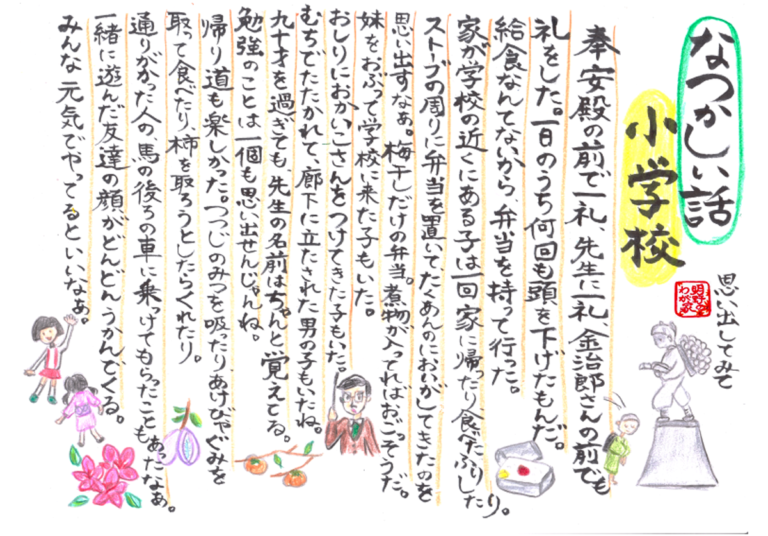 なつかしい話
小学校
思い出してみて
奉安殿の前で一礼、先生に一礼、金治郎さんの前でも
礼をした。一日のうち何回も頭を下げたもんだ。
給食なんてないから、弁当を持って行った。
家が学校の近くにある子は一回家に帰ったり食べたふりしたり。
ストーブの周りに弁当を置いて、たくあんのにおいがしてきたのを
思い出すなぁ。梅干しだけの弁当。煮物が入ってればおごっそうだ。
妹をおぶって学校に来た子もいた。
おしりにおかいこさんをつけてきた子もいた。
むちでたたかれて、廊下に立たされた男の子もいたね。
九十才を過ぎても、先生の名前はちゃんと覚えてる。
勉強のことは一個も思い出せんじゃんね。
帰り道も楽しかった。つつじのみつを吸ったりあけびやぐみを
取って食べたり、柿を取ろうとしたらくれたり。
通りがかった人の、馬の後ろの車に乗っけてもらったこともあったなぁ。
一緒に遊んだ友達の顔がどんどんうかんでくる。
みんな元気でやってるといいなぁ。